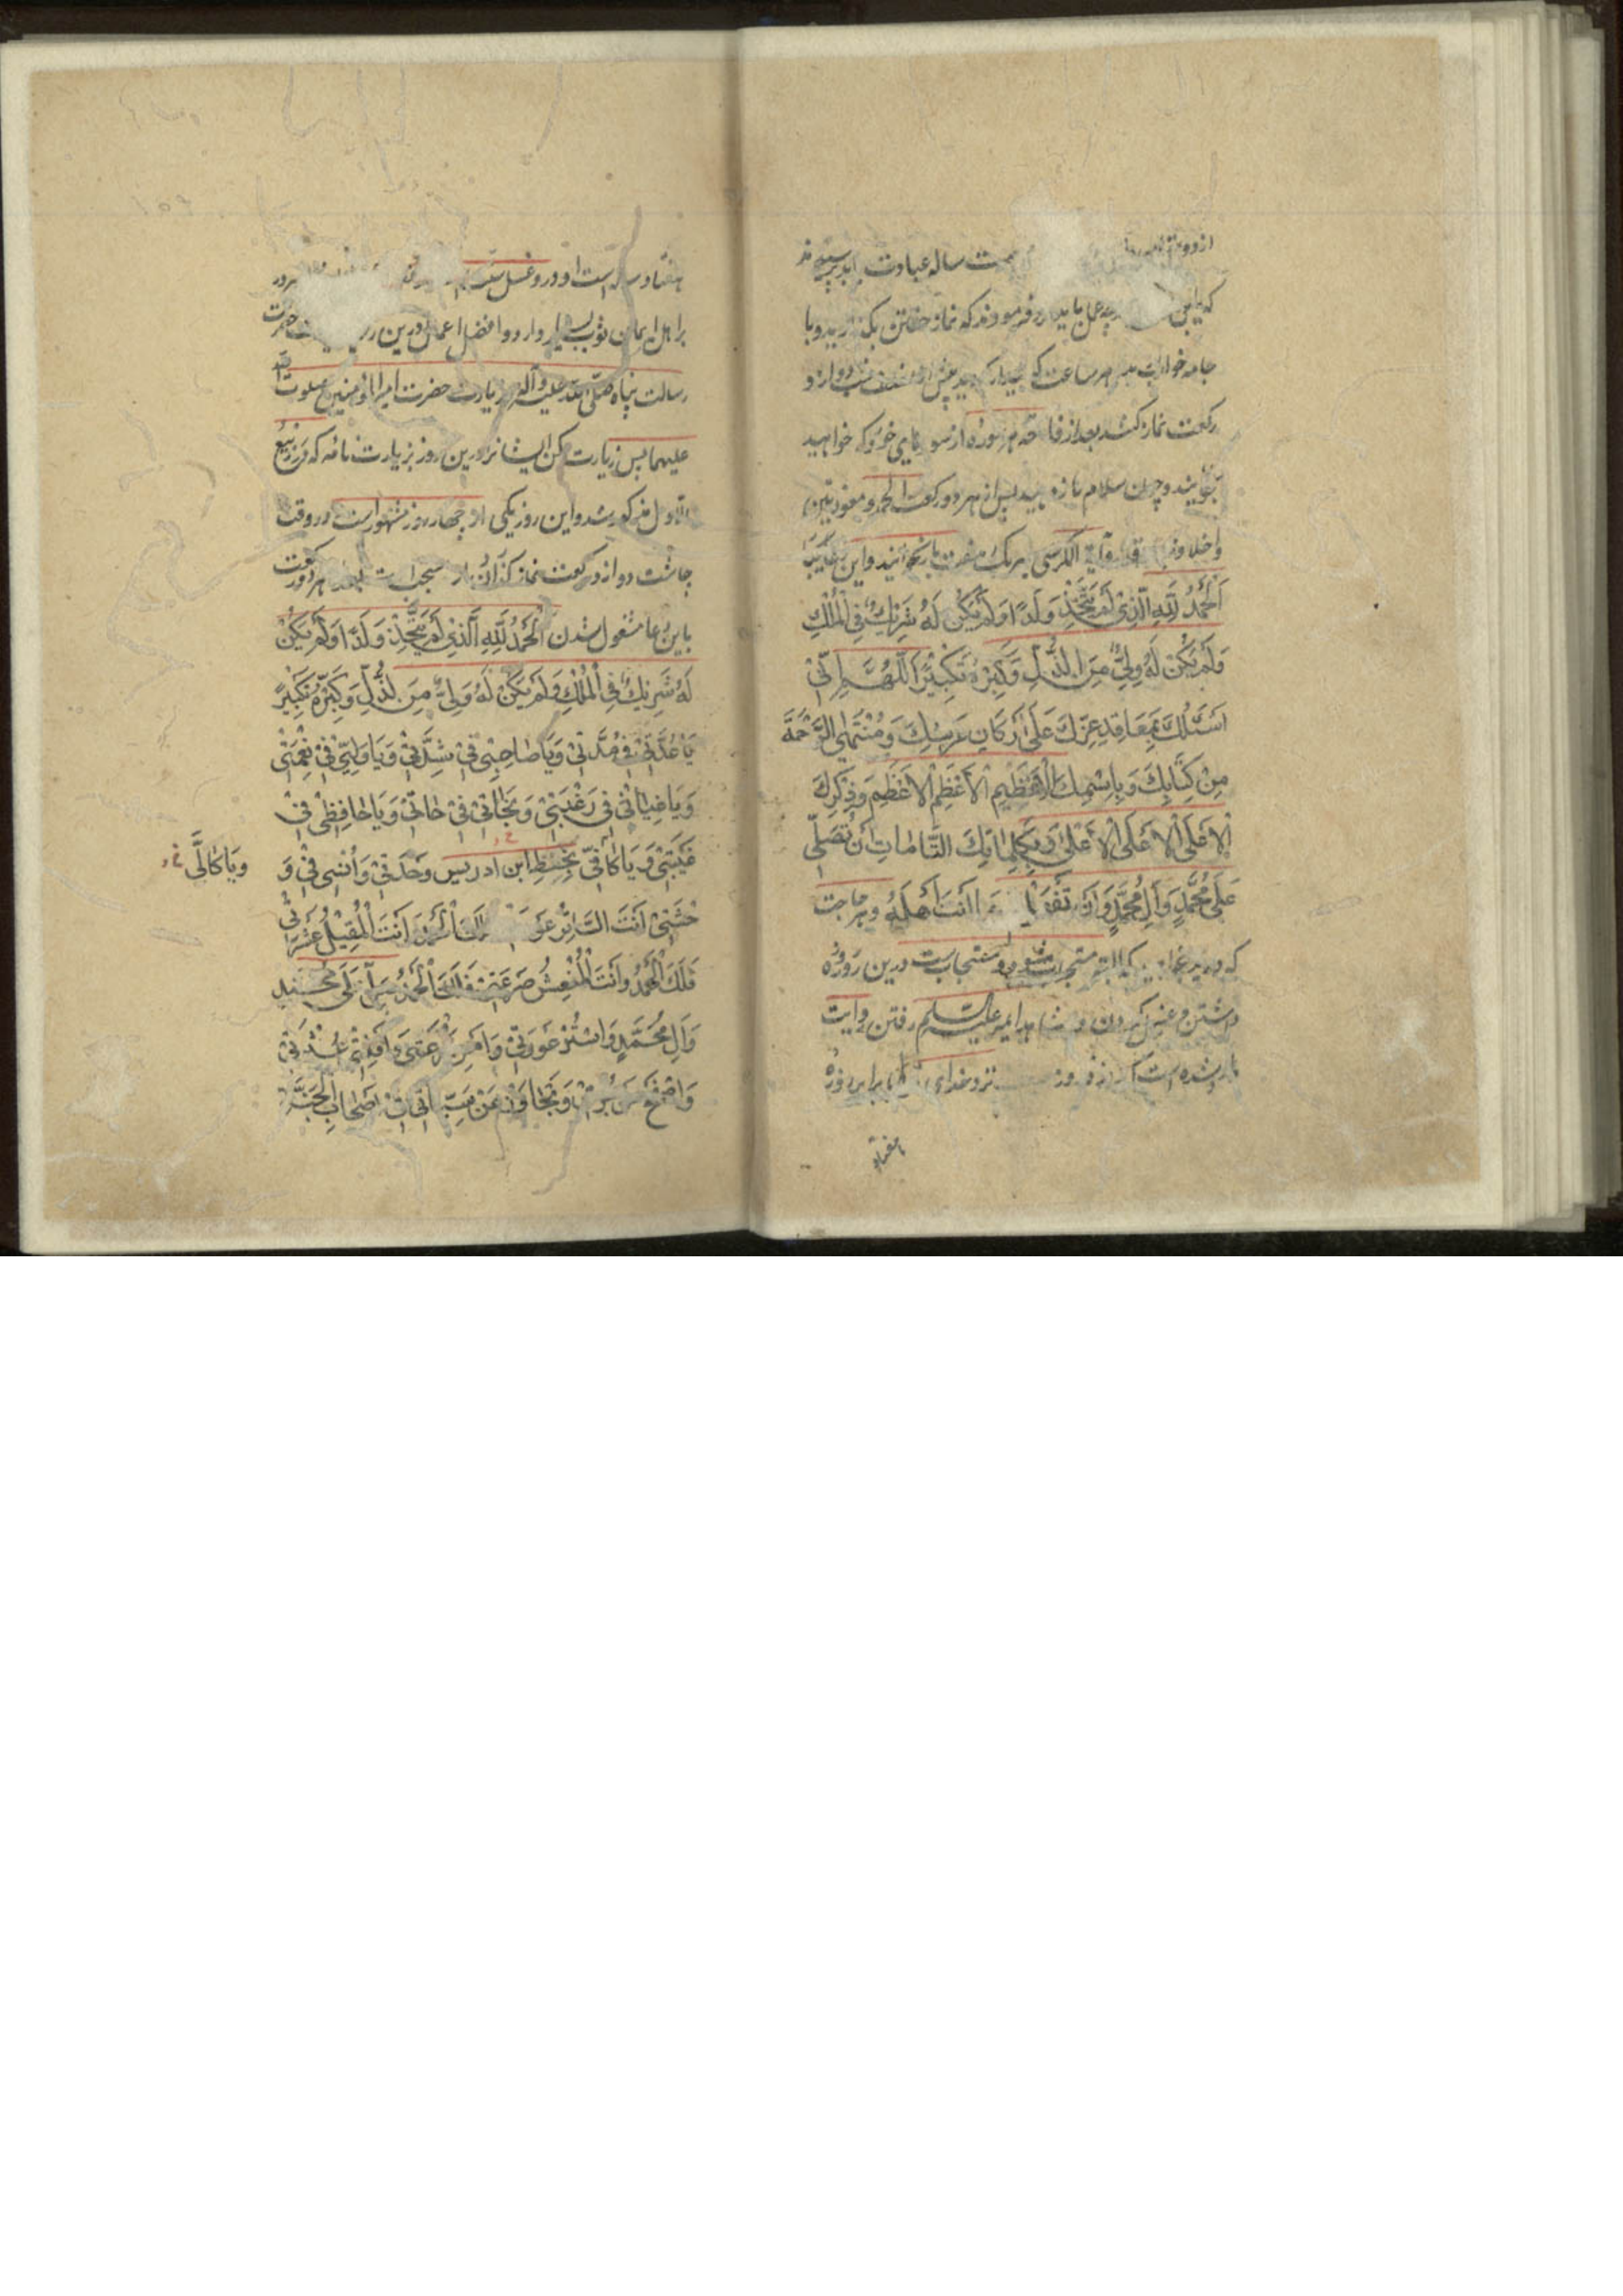 شصت ساله عبادت پرسیدند
که این چه عمل باید کرد فرمودند که نماز خفتن بگذارید و با
جامه خواب هر ساعت که بیدار پیش از نصف شب دوازده
رکعت نماز بعد از فاتحه هر سوره از سورهای خورد که خواهید
بخوانید و چون سلام باز دهید پس از هر دو رکعت الحمد و معوذتین
و اخلاص و آیة الکرسی هر یک هفت بار بخوانید و این دعا
اَلْحَمْدُ لِلّٰهِ الَّذِیْ لَمْ یَتَّخِذْ وَلَدًا وَلَمْ یَکُنْ لَهُ شَرِیْكٌ فِی الْمُلْكِ
وَلَمْ یَکُنْ لَهُ وَلِیٌّ مِنَ الذُّلِّ وَکَبِّرْهُ تَکْبِیْرًا اَللّٰهُمَّ اِنِّیْ
اَسْئَلُكَ بِمَعَاقِدِ عِزِّكَ عَلٰی اَرْکَانِ عَرْشِكَ وَمُنْتَهَی الرَّحْمَةِ
مِنْ کِتَابِكَ وَبِاسْمِكَ الْاَعْظَمِ الْاَعْظَمِ وَذِکْرِكَ
الْاَعْلَی الْاَعْلَی الْاَعْلٰی وَبِکَلِمَاتِكَ التَّامَّاتِ اَنْ تُصَلِّیَ
عَلٰی مُحَمَّدٍ وَآلِ مُحَمَّدٍ وَاَنْ تَفْعَلَ مَا اَنْتَ اَهْلُهُ و هر حاجت
که البته مستجابست درین روز روزه
داشتن و غسل کردن و امیر علیه السلم رفتن روایت
شده است نزد خدای برابر روزه
هفتاد
هفتاد ساله است و درو غسل سنت
بر اهل ایمان ثواب بسیار وارد و افضل اعمال درین حضرت
رسالت پناه صلی الله علیه وآله و زیارت حضرت امیر المؤمنین صلوت الله
علیهما پس زیارت کن ایشانرا درین روز بزیارت نامه که در ربیع
الاول مذکور شد و این روز یکی از چهار روز مشهور است در وقت
چاشت دوازده رکعت نماز گذاردن مستحب است بعد هر دو رکعت
باین دعا مشغول شدن اَلْحَمْدُ لِلّٰهِ الَّذِیْ لَمْ یَتَّخِذْ وَلَدًا وَلَمْ یَکُنْ
لَهُ شَرِیْكٌ فِی الْمُلْكِ وَلَمْ یَکُنْ لَهُ وَلِیٌّ مِنَ الذُّلِّ وَکَبِّرْهُ تَکْبِیْرًا
یَا عُدَّتِیْ فِیْ مُدَّتِیْ وَیَا صَاحِبِیْ فِیْ شِدَّتِیْ وَیَا وَلِیِّیْ فِیْ نِعْمَتِیْ
وَیَا غِیَاثِیْ فِیْ رَغْبَتِیْ وَنَجَاتِیْ فِیْ حَاجَتِیْ وَیَا حَافِظِیْ فِیْ
غَیْبَتِیْ وَ یَا کَافِیَّ بخط ابن ادریس وَحْدَتِیْ وَاُنْسِیْ فِیْ وَ
ویَا کَالِئَ
حْشَتِیْ اَنْتَ السَّاتِرُ عَوْرَتِیْ فَلَكَ الْحَمْدُ وَ اَنْتَ الْمُقِیْلُ عَثْرَتِیْ
فَلَكَ الْحَمْدُ وَاَنْتَ الْمُنْعِشُ صَرْعَتِیْ فَلَكَ الْحَمْدُ صَلِّ عَلٰی مُحَمَّدٍ
وَآلِ مُحَمَّدٍ وَاسْتُرْ عَوْرَتِیْ وَآمِنْ رَوْعَتِیْ وَاَقِلْنِیْ عَثْرَتِیْ
وَاصْفَحْ عَنْ جُرْمِیْ وَتَجَاوَزْ عَنْ سَیِّئَاتِیْ فِیْ اَصْحَابِ الْجَنَّةِ